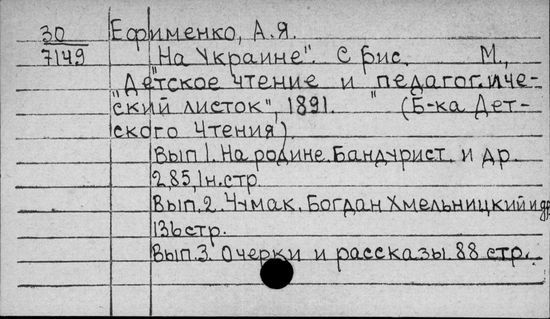 30 Ефименко, А.Я.
7149 "На Украине". С рис. М.,
"Детское чтение и "педагогиче-
ский листок", 1891. (Б-ка Дет-
ского Чтения).
Вып 1. На родине. Бандурист. и др.
2,85,1н.стр.
Вып.2. Чумак. Богдан Хмельницкий и др
136 стр.
Вып.3. Очерки и рассказы. 88 стр.